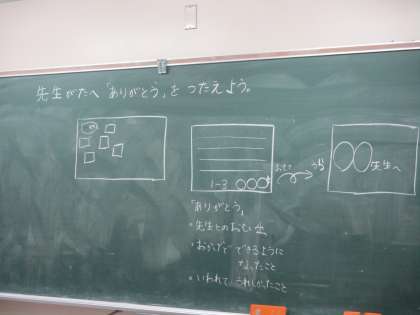 先生がたへ「ありがとう」を つたえよう。
1-3 ○○○
おもて
うら
○○先生へ
「ありがとう」
・先生とのおもい出
・おかげで できるように
なったこと
・いわれて うれしかったこと